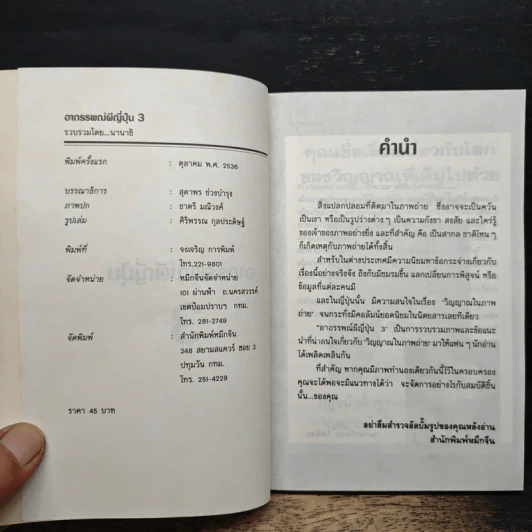 อาถรรพณ์ผีญี่ปุ่น 3
รวบรวมโดย...นานายิ
พิมพ์ครั้งแรก : ตุลาคม พ.ศ. 2536
บรรณาธิการ : สุดาพร ช่วงบำรุง
ภาพปก : ชาตรี มณีวงค์
รูปเล่ม : ศิริพรรณ กุลประดิษฐ์
พิมพ์ที่ : จงเจริญ การพิมพ์
โทร.221-9801
จัดจำหน่าย : หมึกจีนจัดจำหน่าย
101 ผ่านฟ้า ถ.นครสวรรค์
เขตป้อมปราบฯ กทม.
โทร. 281-2749
จัดพิมพ์ : สำนักพิมพ์หมึกจีน
248 สยามสแควร์ ซอย 2
ปทุมวัน กทม.
โทร. 251-4229
ราคา 45 บาท
คำนำ
สิ่งแปลกปลอมที่ติดมาในภาพถ่าย ซึ่งอาจจะเป็นควัน
เป็นเงา หรือเป็นรูปร่างต่าง ๆ เป็นความกังขา สงสัย และใคร่รู้
ของเจ้าของภาพอย่างยิ่ง และที่สำคัญ คือ เป็นสากล ชาติไหน ๆ
ก็เกิดเหตุกับภาพถ่ายได้ทั้งสิ้น
สำหรับในต่างประเทศมีความนิยมหาข้อกระจ่างเกี่ยวกับ
เรื่องนี้อย่างจริงจัง ถึงกับมีชมรมขึ้น แลกเปลี่ยนการพิสูจน์ หรือ
ข้อมูลที่แต่ละคนมี
และในญี่ปุ่นนั้น มีความสนใจในเรื่อง 'วิญญาณในภาพ
ถ่าย' จนกระทั่งมีคอลัมน์ยอดนิยมในนิตยสารเลยทีเดียว
"อาถรรพณ์ผีญี่ปุ่น 3" เป็นการรวบรวมภาพและข้อแนะ
นำที่น่าสนใจเกี่ยวกับ 'วิญญาณในภาพถ่าย' มาให้แฟน ๆ นักอ่าน
ได้เพลิดเพลินกัน
ที่สำคัญ หากคุณมีภาพทำนองเดียวกันนี้ไว้ในครอบครอง
คุณจะได้พอจะมีแนวทางได้ว่า จะจัดการอย่างไรกับสมบัติชิ้น
นั้น...ของคุณ
อย่าลืมสำรวจอัลบั้มรูปของคุณหลังอ่าน
สำนักพิมพ์หมึกจีน